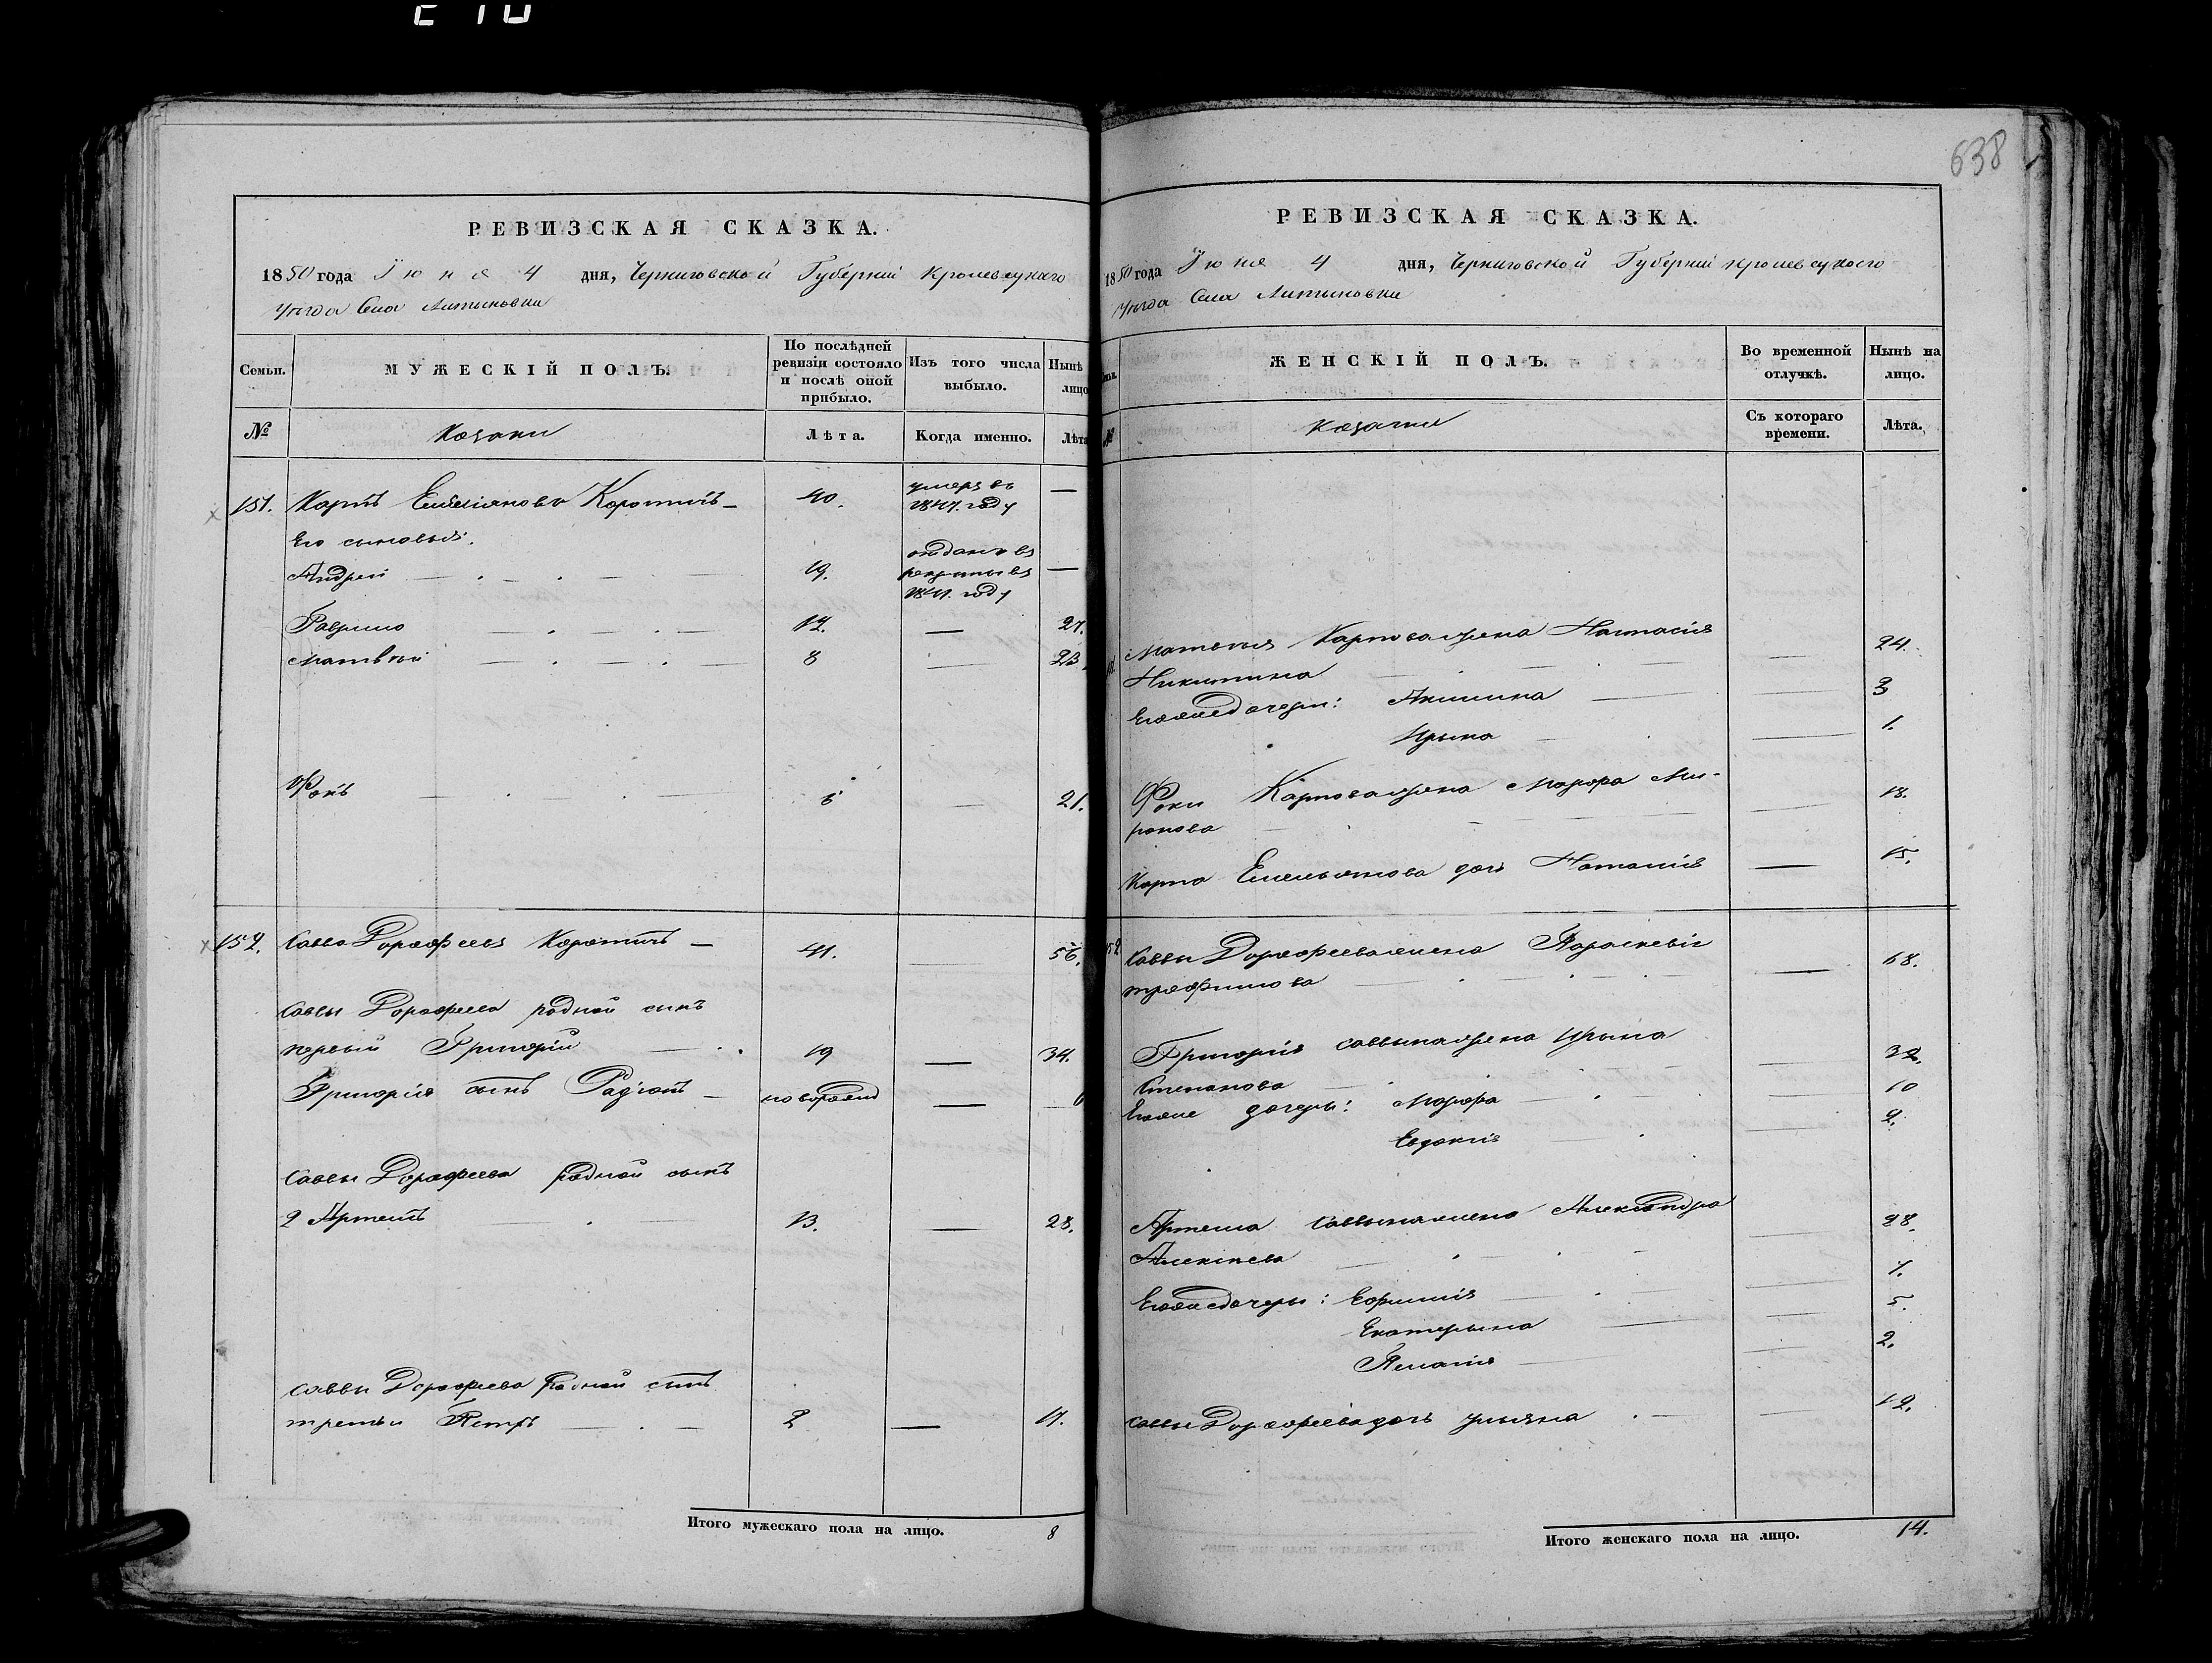 638
РЕВИЗСКАЯ СКАЗКА.
1850 года Іюня 4 дня, Черниговской Губерніи Кролевецкаго
Уѣзда Села Литыновки
Семьи.
МУЖЕСКІЙ ПОЛЪ.
По послѣдней ревизіи состояло и послѣ оной прибыло.
Изъ того числа выбыло.
Нынѣ лицо
№
Козаки
Лѣта.
Когда именно.
Лѣта
151. Карпъ Емельяновъ Коротичъ 40. умеръ въ 1847. году —
Его сыновья:
Андрей 19. отданъ въ рекруты въ 1841. году —
Гаврило 12. — 27.
Матвѣй 8 — 23.
Фока 6 — 21.
152. Савва Дорофеевъ Коротичъ 41. — 56.
Саввы Дорофеева родной сынъ
первый Григорій 19 — 34.
Григорія сынъ Радіонъ новорожд —
Саввы Дорофеева родной сынъ
2 Артемъ 13. — 28.
Саввы Дорофеева родной сынъ
третьи Петръ 2 — 17.
Итого мужескаго пола на лицо. 8
РЕВИЗСКАЯ СКАЗКА.
1850 года Іюня 4 дня, Черниговской Губерніи Кролевецкаго
Уѣзда Села Литыновки
ЖЕНСКІЙ ПОЛЪ.
Во временной отлучкѣ.
Нынѣ на лицо.
№
Козачки
Съ котораго времени.
Лѣта.
Матвѣя Карпова жена Настасія
Никитина — 24.
Его же дочери: Акилина — 3
Ирына — 1.
Фоки Карпова жена Марфа Ми-
ронова — 18.
Карпа Емельянова дочь Наталія — 15.
152 Саввы Дорофеева жена Параскевія
Трофимова — 68.
Григорія Саввина жена Ирына
Степанова — 32.
Его же дочери: Марфа — 10
Евдокія — 2.
Артема Саввина жена Александра
Алексѣева — 28.
Его же дочери: Ефимія — 7.
Екатерына — 5.
Пелагія — 2.
Саввы Дорофеева дочь Ульяна — 12.
Итого женскаго пола на лицо. 14.